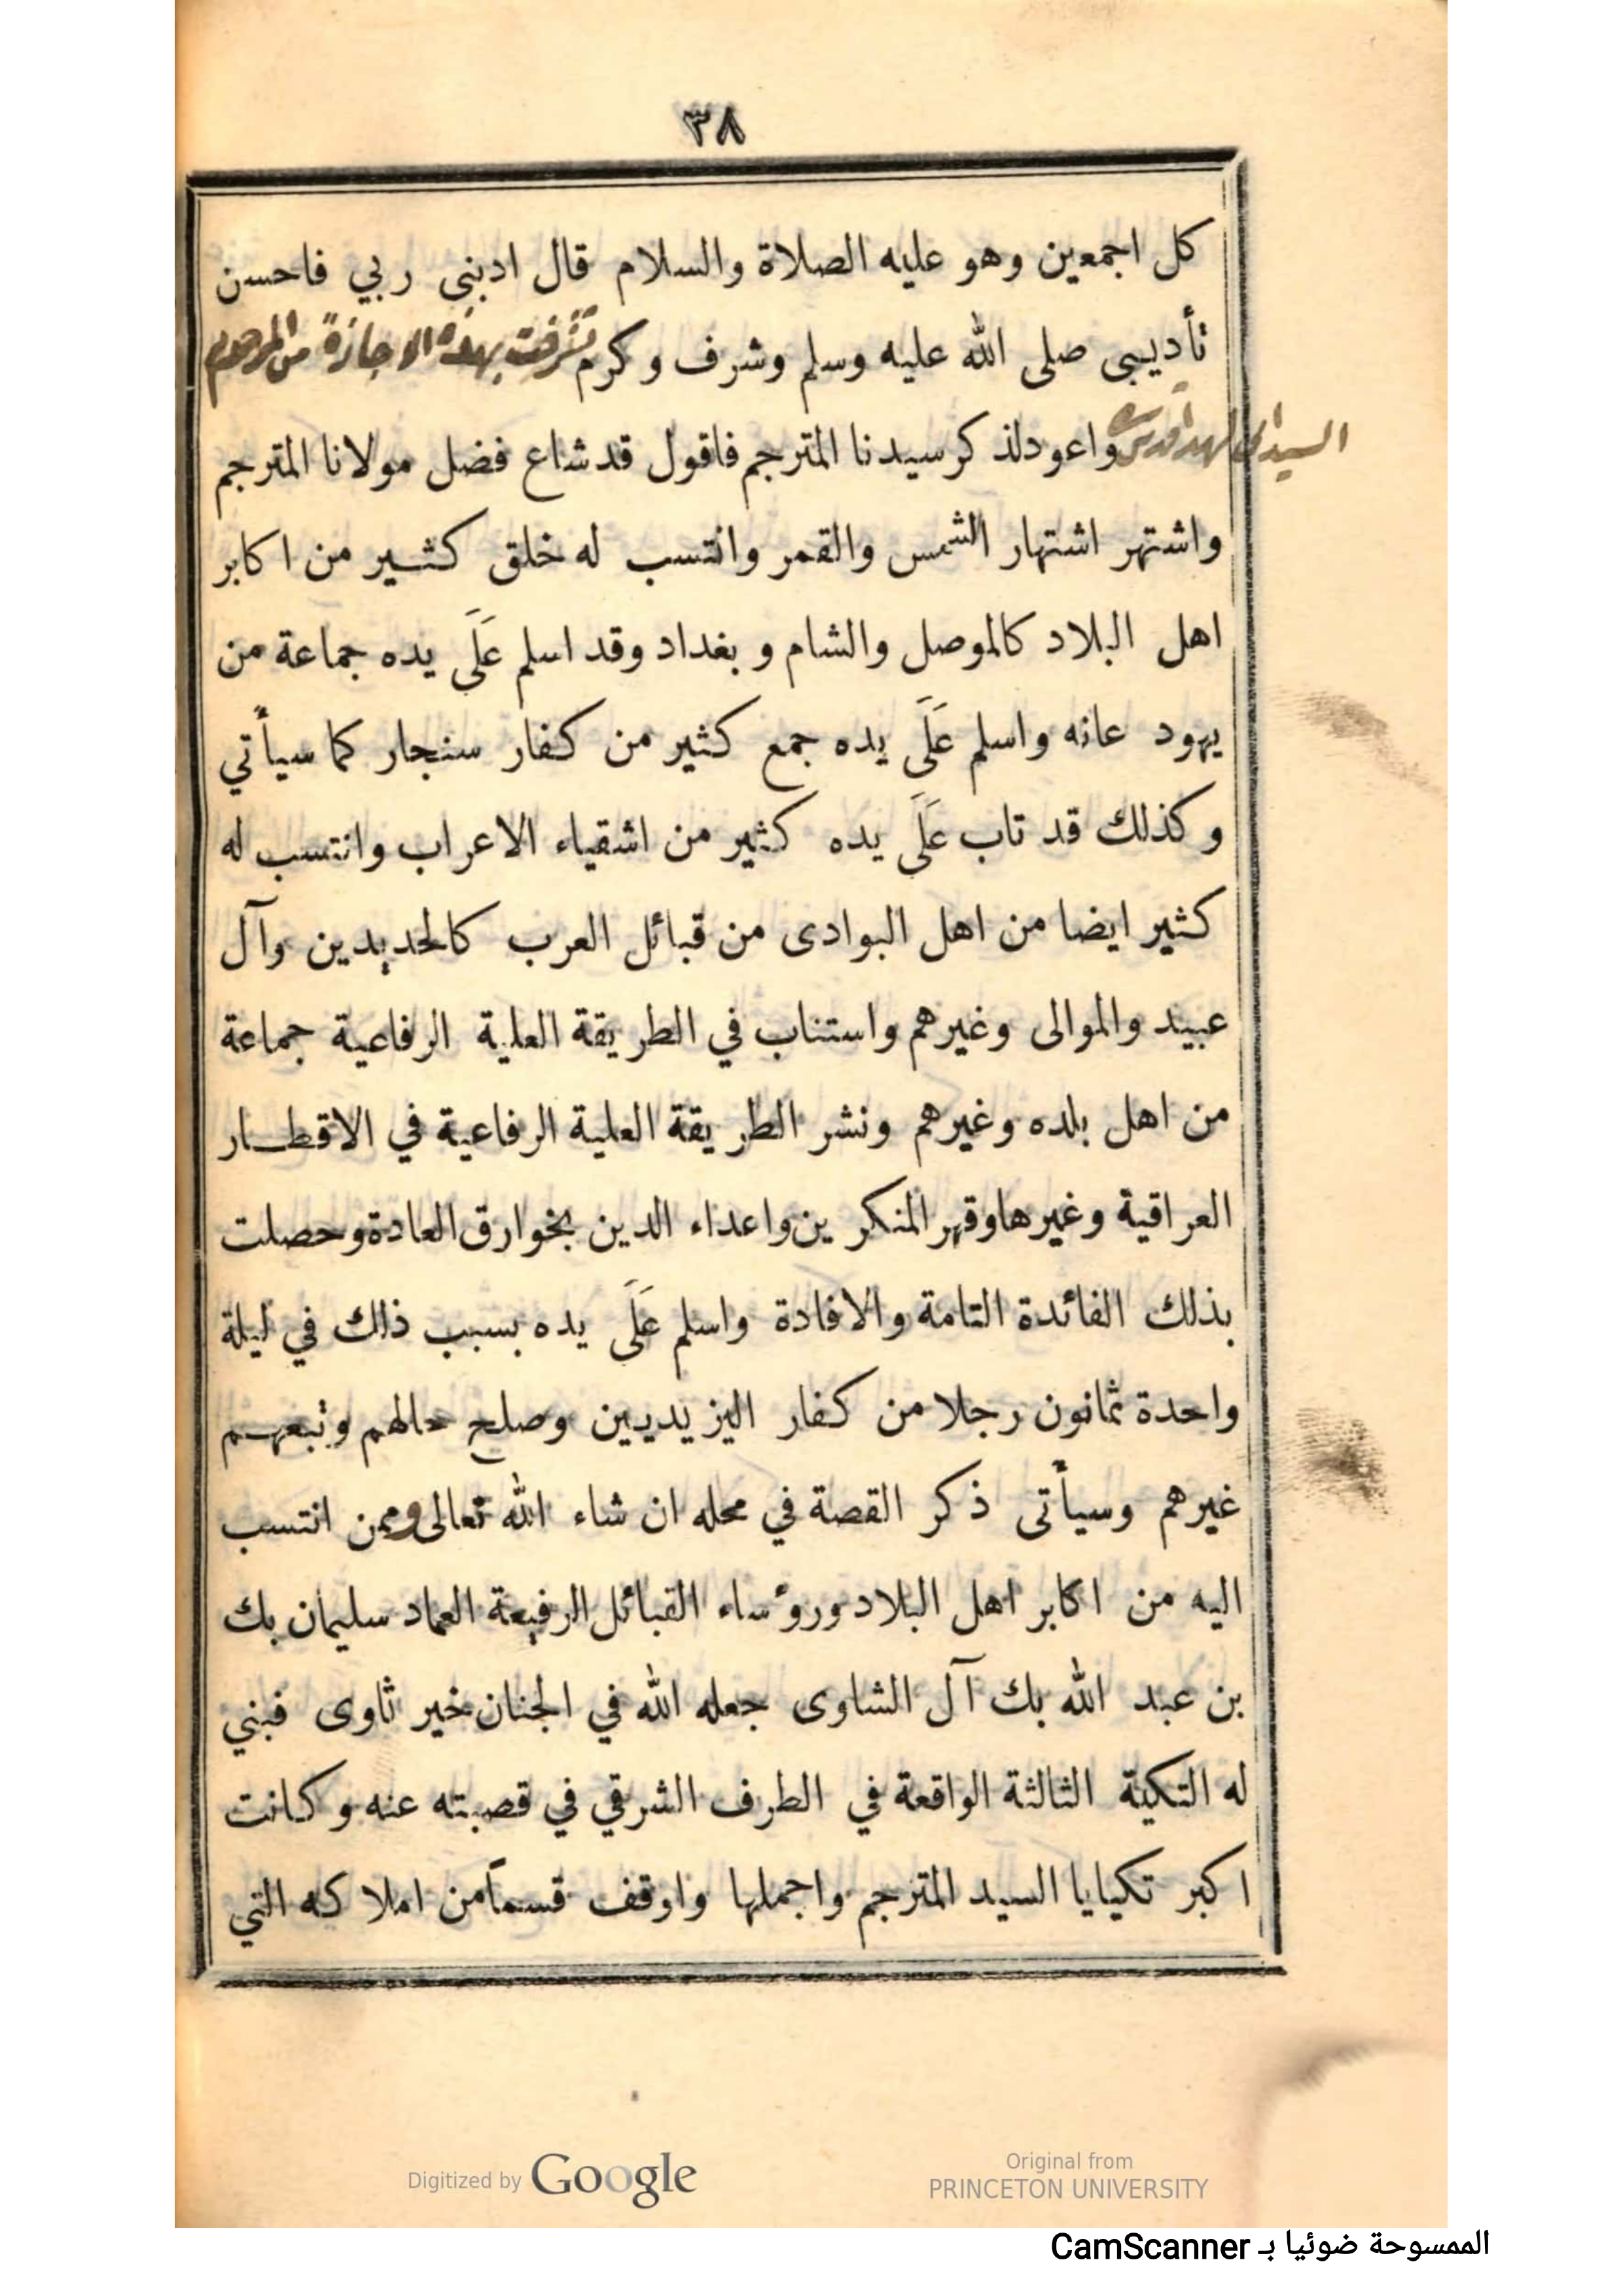 ٣٨
كل اجمعين وهو عليه الصلاة والسلام قال ادبنى ربي فاحسن
تأديبى صلى الله عليه وسلم وشرف وكرم تشرفت بهذه الاجازة من المرحوم
السيد
واعود لذكر سيدنا المترجم فاقول قد شاع فضل مولانا المترجم
واشتهر اشتهار الشمس والقمر وانتسب له خلق كثير من اكابر
اهل البلاد كالموصل والشام وبغداد وقد اسلم عَلَى يده جماعة من
يهود عانه واسلم عَلَى يده جمع كثير من كفار سنجار كما سيأتي
وكذلك قد تاب عَلَى يده كثير من اشقياء الاعراب وانتسب له
كثير ايضا من اهل البوادى من قبائل العرب كالحديدين وآل
عبيد والموالى وغيرهم واستناب في الطريقة العلية الرفاعية جماعة
من اهل بلده وغيرهم ونشر الطريقة العلية الرفاعية في الاقطار
العراقية وغيرها وقهر المنكرين واعداء الدين بخوارق العادة وحصلت
بذلك الفائدة التامة والافادة واسلم عَلَى يده بسبب ذلك في ليلة
واحدة ثمانون رجلا من كفار اليزيديين وصلح حالهم وتبعهم
غيرهم وسيأتى ذكر القصة في محله ان شاء الله تعالى وممن انتسب
اليه من اكابر اهل البلاد ورؤساء القبائل الرفيعة العماد سليمان بك
بن عبد الله بك آل الشاوى جعله الله في الجنان خير ثاوى فبني
له التكية الثالثة الواقعة في الطرف الشرقي في قصبته عنه وكانت
اكبر تكيايا السيد المترجم واجملها واوقف قسماً من املاكه التي
Digitized by Google
Original from
PRINCETON UNIVERSITY
الممسوحة ضوئيا بـ CamScanner